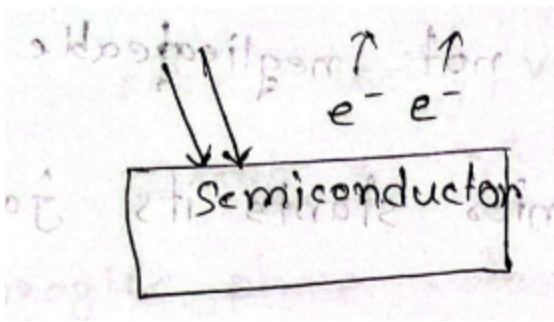 e⁻ e⁻
Semiconductor